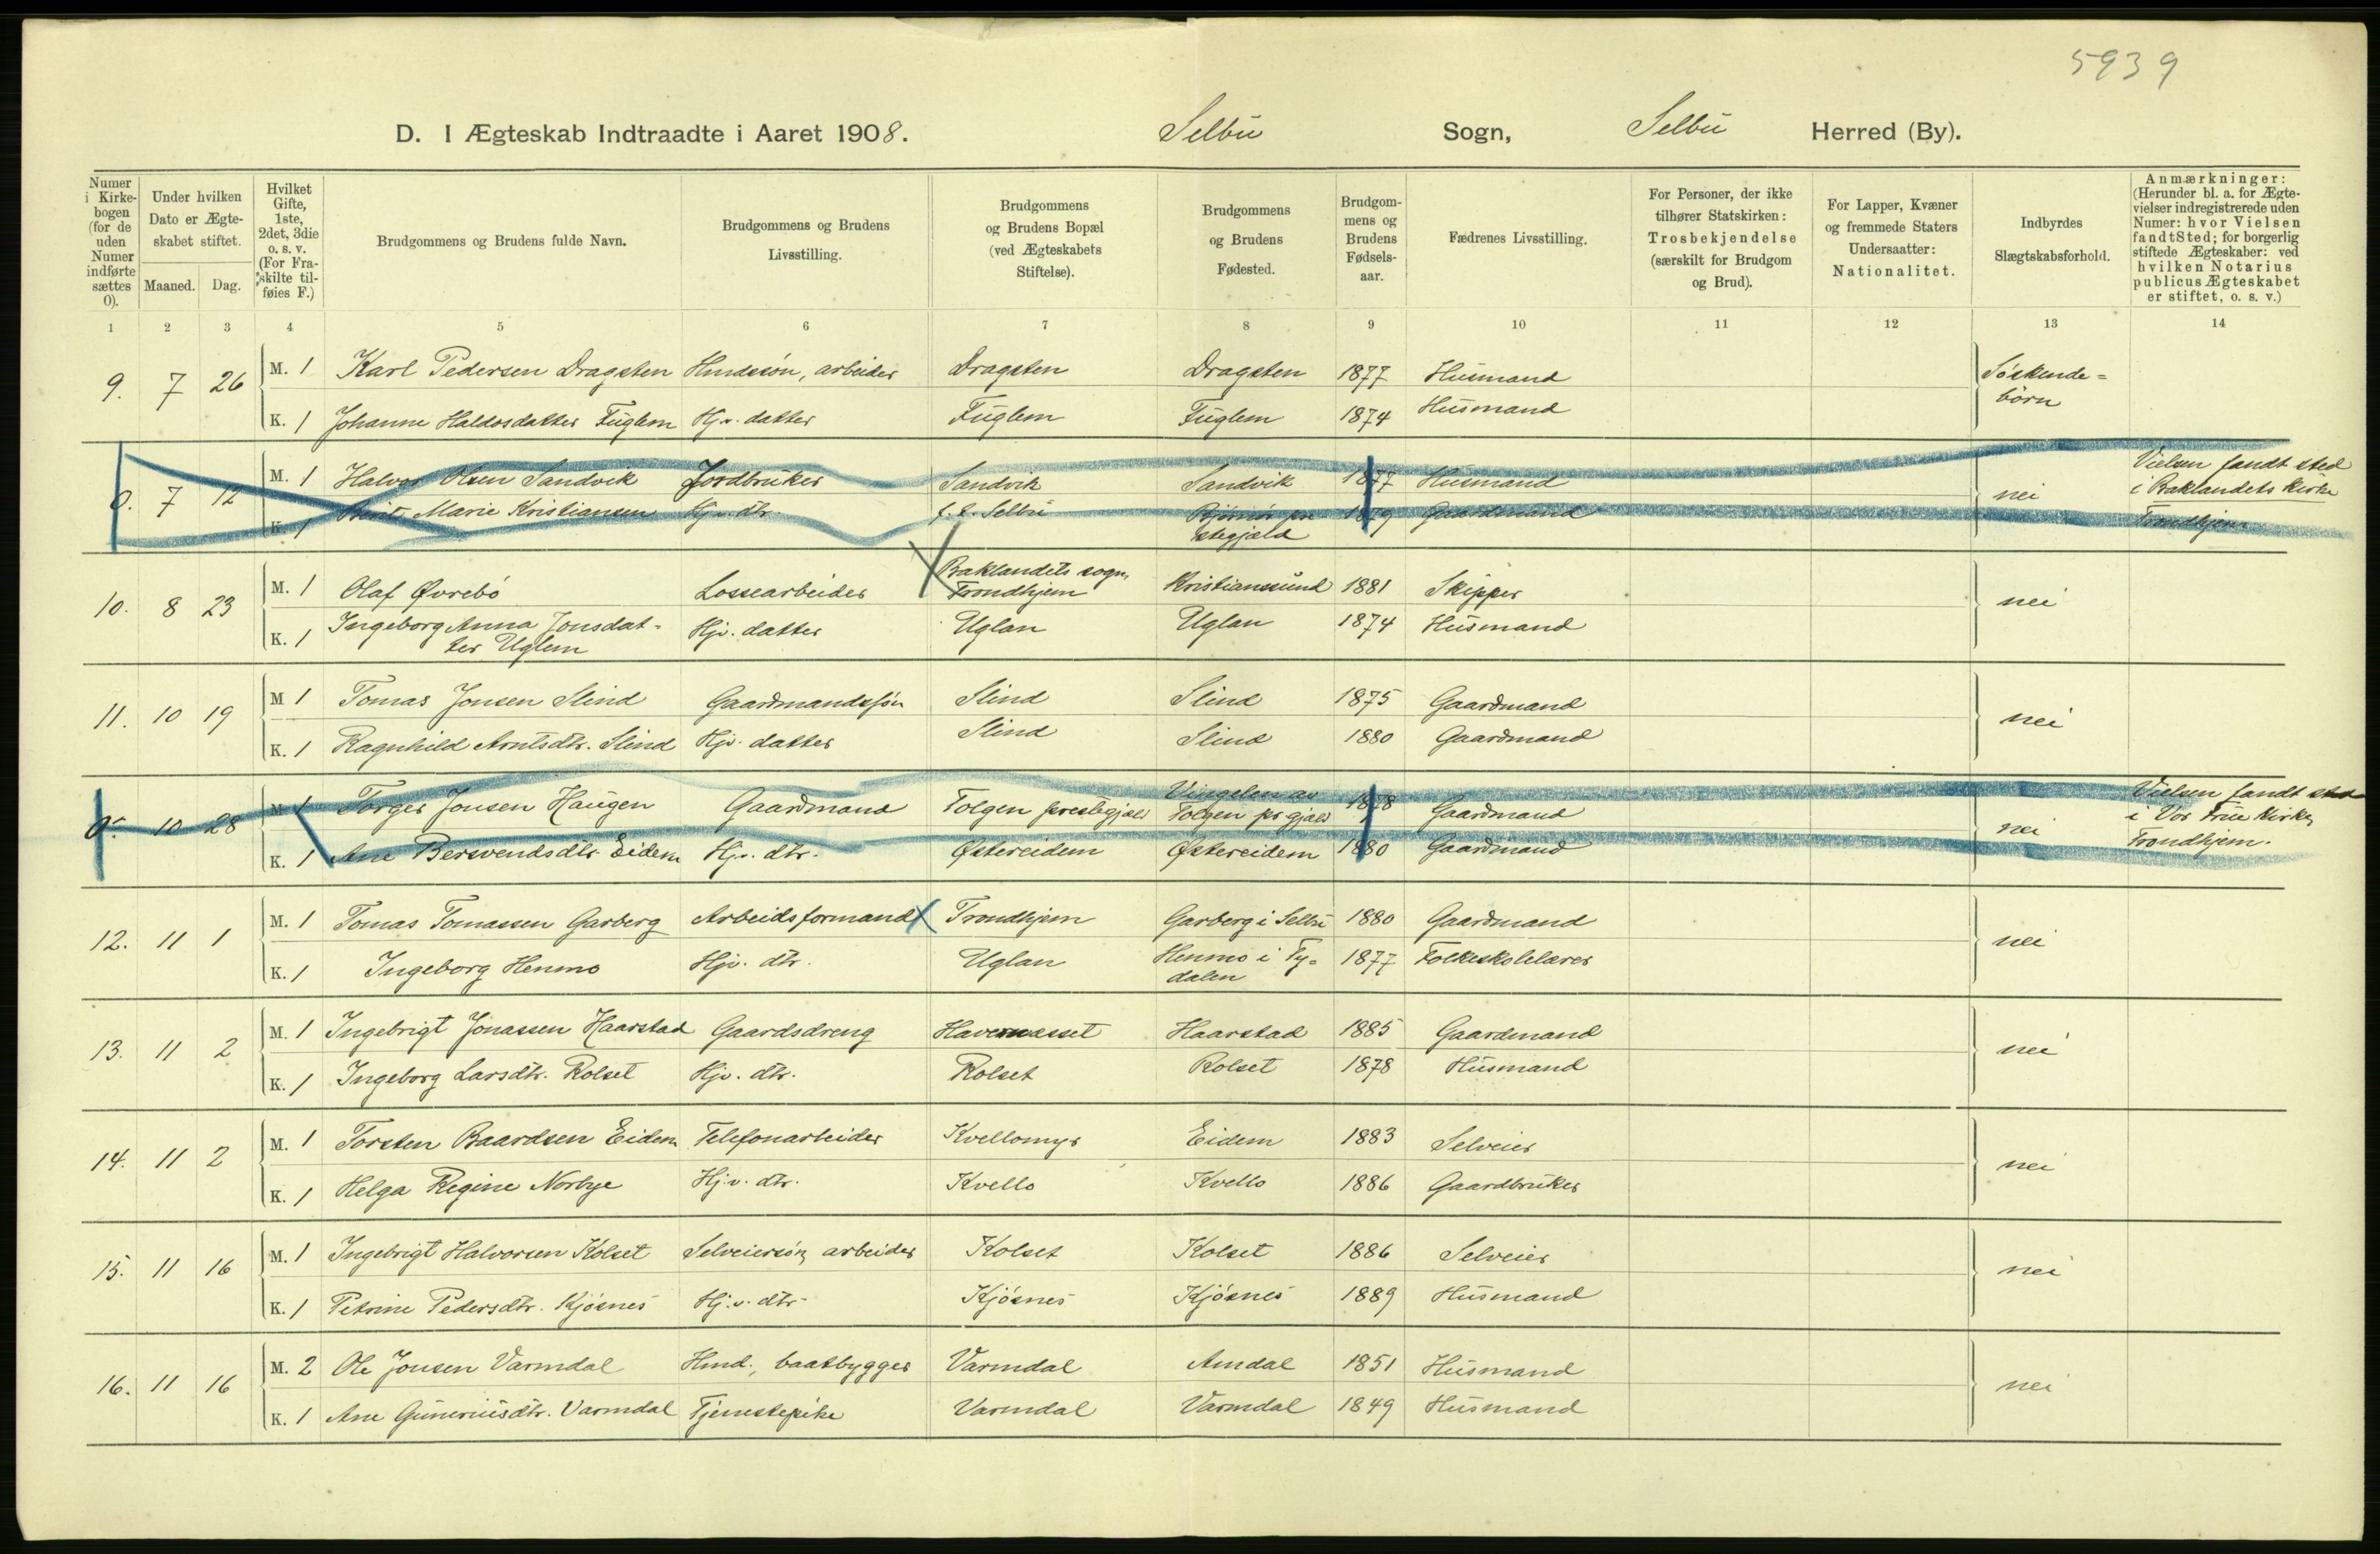 5939
D. I Ægteskab Indtraadte i Aaret 1908. Selbu Sogn, Selbu Herred (By).
Numer i Kirkebogen (for de uden Numer indførte sættes 0).
Under hvilken Dato er Ægteskabet stiftet.
Maaned. Dag.
Hvilket Gifte, 1ste, 2det, 3die o. s. v. (For Fraskilte tilføies F.)
Brudgommens og Brudens fulde Navn.
Brudgommens og Brudens Livsstilling.
Brudgommens og Brudens Bopæl (ved Ægteskabets Stiftelse).
Brudgommens og Brudens Fødested.
Brudgommens og Brudens Fødselsaar.
Fædrenes Livsstilling.
For Personer, der ikke tilhører Statskirken: Trosbekjendelse (særskilt for Brudgom og Brud).
For Lapper, Kvæner og fremmede Staters Undersaatter: Nationalitet.
Indbyrdes Slægtskabsforhold.
Anmærkninger: (Herunder bl. a. for Ægtevielser indregistrerede uden Numer: hvor Vielsen fandt Sted; for borgerlig stiftede Ægteskaber: ved hvilken Notarius publicus Ægteskabet er stiftet, o. s. v.)
1 2 3 4 5 6 7 8 9 10 11 12 13 14
9. 7 26 M. 1 Karl Pedersen Dragsten Hmdssön, arbeider Dragsten Dragsten 1877 Husmand Söskendebörn
K. 1 Johanne Haldosdatter Fuglem Hjv. datter Fuglem Fuglem 1874 Husmand
0. 7 12 M. 1 Halvor Olsen Sandvik Jordbruker Sandvik Sandvik 1877 Husmand nei Vielsen fandt sted i Baklandets kirke Trondhjem
K. 1 Berit Marie Kristiansen Hjv. dtr f. t. Selbu Bjömör prestegjæld 1879 Gaardmand
10. 8 23 M. 1 Olaf Øvrebö Lossearbeider Baklandets sogn, Trondhjem Kristianssund 1881 Skipper nei
K. 1 Ingeborg Anna Jonsdatter Uglem Hjv. datter Uglan Uglan 1874 Husmand
11. 10 19 M 1 Tomas Jonsen Slind Gaardmandssön Slind Slind 1875 Gaardmand nei
K. 1 Ragnhild Arntsdtr. Slind Hjv. datter Slind Slind 1880 Gaardmand
0. 10 28 M 1 Torger Jonsen Haugen Gaardmand Tolgen prestegjæld Vingelen av Tolgen pr gjæld 1878 Gaardmand nei Vielsen fandt sted i Vor Frue Kirke, Trondhjem.
K. 1 Ane Bersvendsdtr. Eidem Hjv. dtr. Østereidem Østereidem 1880 Gaardmand
12. 11 1 M. 1 Tomas Tomassen Garberg Arbeidsformand Trondhjem Garberg i Selbu 1880 Gaardmand nei
K. 1 Ingeborg Henmo Hjv. dtr. Uglan Henmo i Tydalen 1877 Folkeskolelærer
13. 11 2 M. 1 Ingebrigt Jonassen Haarstad Gaardsdreng Havernesset Haarstad 1885 Gaardmand nei
K. 1 Ingeborg Larsdtr. Rolset Hjv. dtr. Rolset Rolset 1878 Husmand
14. 11 2 M. 1 Torsten Baardsen Eidem Telefonarbeider Kvellomyr Eidem 1883 Selveier nei
K. 1 Helga Regine Norbye Hj.v. dtr. Kvello Kvello 1886 Gaardbruker
15. 11 16 M. 1 Ingebrigt Halvorsen Kolset Selveiersön, arbeider Kolset Kolset 1886 Selveier nei
K. 1 Petrine Pedersdtr. Kjösnes Hj.v. dtr. Kjösnes Kjösnes 1889 Husmand
16. 11 16 M. 2 Ole Jonsen Varmdal Hmd., baatbygger Varmdal Amdal 1851 Husmand nei
K. 1 Ane Guneriusdtr. Varmdal Tjenestepike Varmdal Varmdal 1849 Husmand